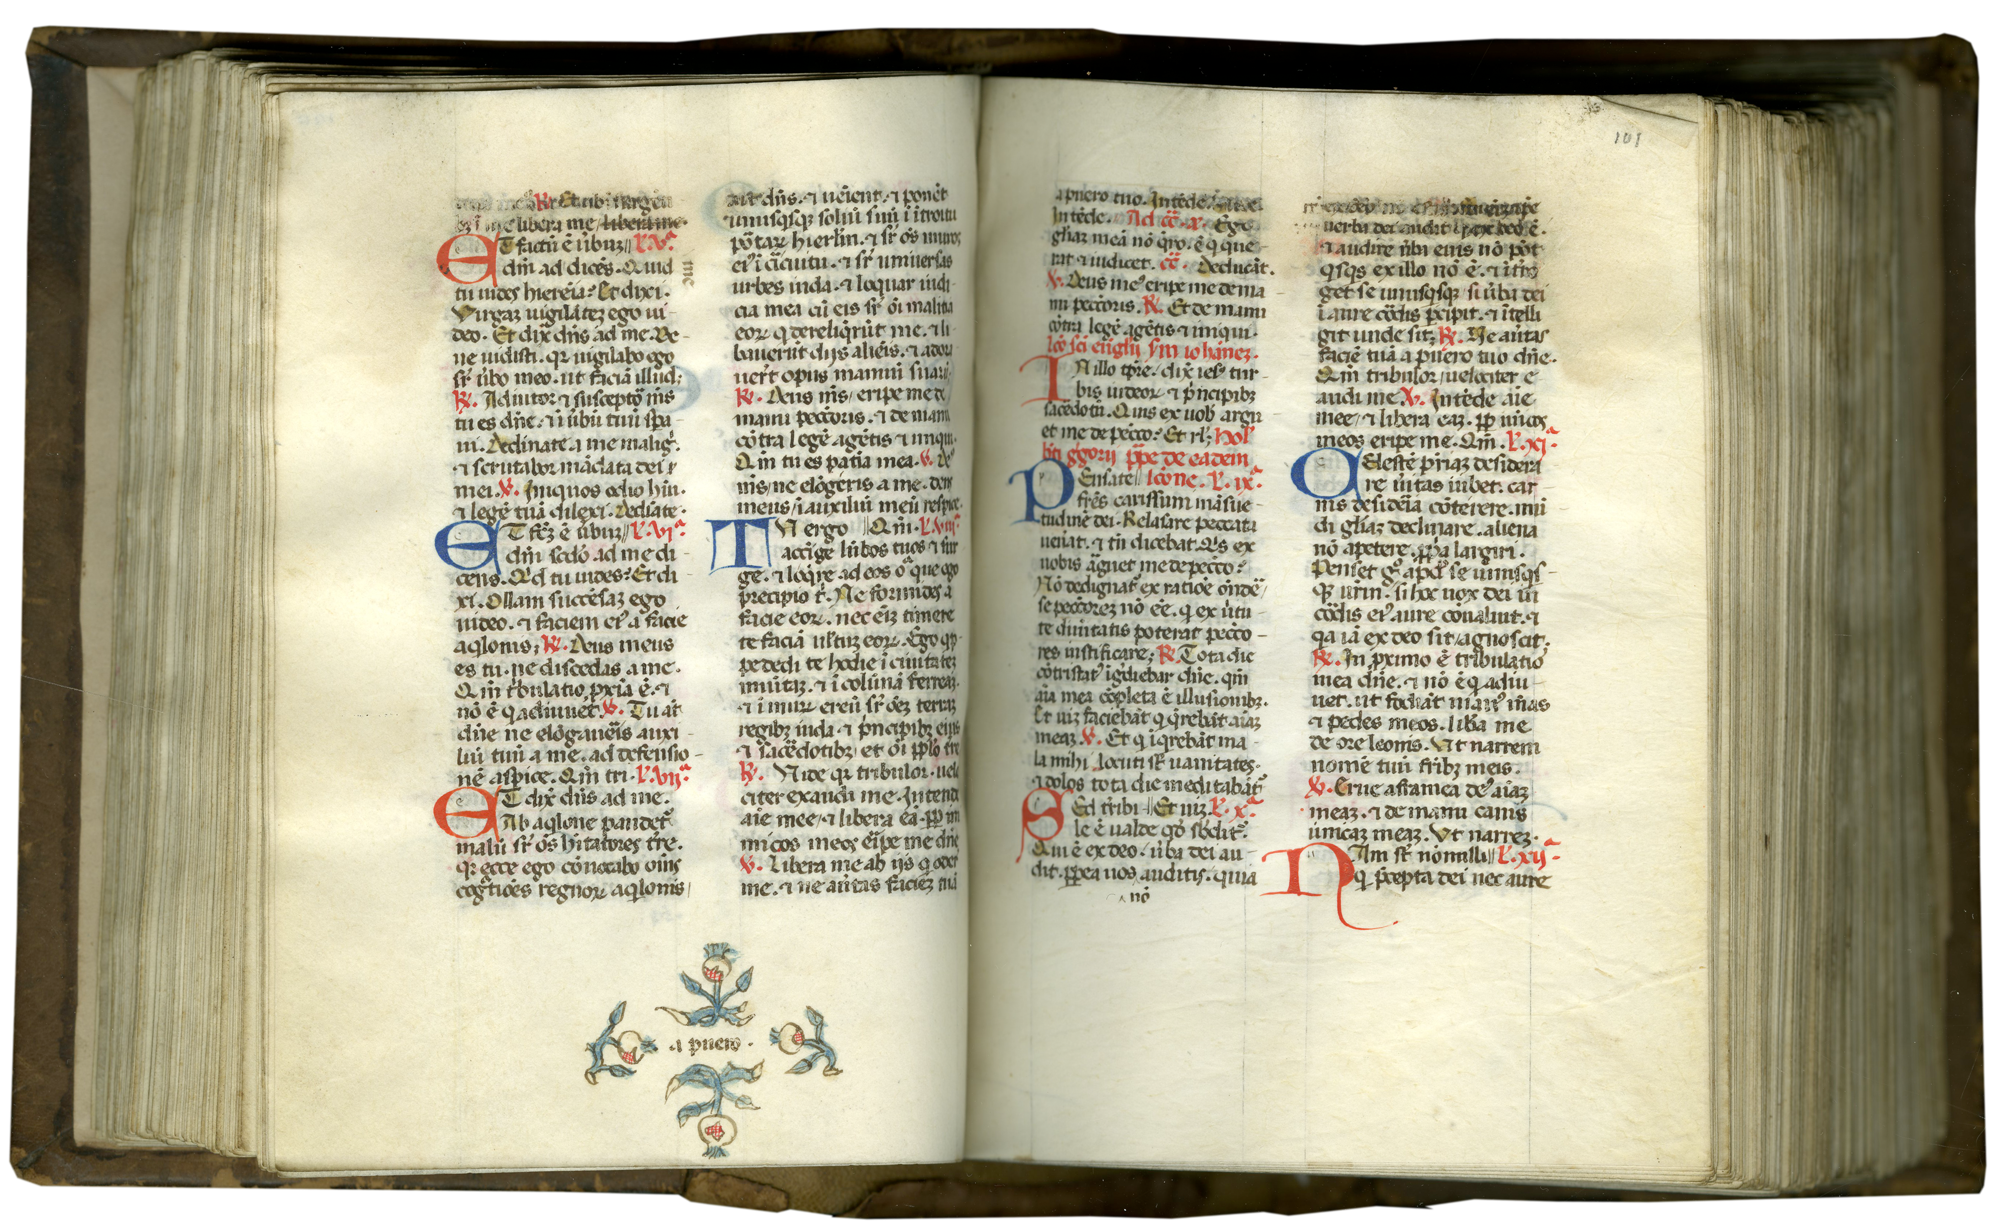 R. Et tib
me libera me libera me.
ET factū ē ūbuz l'. v.ª
dm̄ ad dicēs. Quid
tu uides hieremia? Et dixi.
Virgaz uigilātez ego ui-
deo. Et dix̄ dn̄s ad me. Be-
ne uidisti. qr uigilabo ego
sr̄ ūbo meo. ut faciā illud;
R. Adiutor ⁊ susceptor̄ m̄s
tu es dn̄e. ⁊ ī ūbū tuū spa-
ui. Declinate a me malig̃.
⁊ scrutabor mādata dei
mei. V. Iniquos odio hūi.
⁊ legē tuā dilexi. Decliate.
ET fc̄z ē ūbuz l'. vi.ª
dm̄ scdo ad me di-
cens. Qd tu uides? Et di-
xi. Ollam succēsaz ego
uideo. ⁊ faciem eiꝰ a facie
aqlonis; R. Deus meus
es tu. ne discedas a me.
Qm̄ tr̄bulatio pxīa ē. ⁊
nō ē q adiuuet. V. Tu aūt
dn̄e ne elōgaueris auxi-
liū tuū a me. ad defensio-
nē aspice. Qm̄ tri. l'. vii.ª
ET dix̄ dn̄s ad me.
Ab aqlone pandetꝰ
malū sr̄ ōs hitatores tr̄e.
qr ecce ego cōuocabo om̄s
cog̃tiōes regnoꝝ aqlonis
me
ait dn̄s. ⁊ uēient. ⁊ ponēt
unusqsqz soliū suū ī ītroitu
pōtaꝝ hierl̄m. ⁊ sr̄ ōs muros
eiꝰ ī c̄cuitu. ⁊ sr̄ uniuersas
urbes iuda. ⁊ loquar iudi-
cia mea cū eis sr̄ ōi malitia
eoꝝ q dereliq̄rūt me. ⁊ li-
bauerūt diis aliēis. ⁊ adora-
uer̄t opus manuū suaꝝ;
R. Deus m̄s eripe me de
manu pecc̄oris. ⁊ de manu
cōtra legē agētis ⁊ iniqui.
Qm̄ tu es patīa mea. V. De-
us m̄s ne elōgeris a me. deus
meus ī auxiliū meū respice.
TU ergo Qm̄. l'. viii.ª
accīge lūbos tuos ⁊ sur-
ge. ⁊ loq̄re ad eos oīa que ego
precipio t'. Ne formides a
facie eoꝝ. nec eīz timere
te faciā uultuz eoꝝ. Ego qp-
pe dedi te hodie ī ciuitatez
munitaz. ⁊ ī colūnā ferreaz.
⁊ ī muꝝ ereū sr̄ oēz terraz
regibz iuda ⁊ p̄ncipibz eiꝰ
⁊ sacēdotibz. et ōi pplo tr̄e
R. Uide qr tribulor. uelo-
citer exaudi me. Intende
aīe mee ⁊ libera eā. pp ini-
micos meos ēipe me dn̄e
V. Libera me ab iis q oder̄t
me. ⁊ ne au̇tas faciez tuā
a puero.
101
a puero tuo. Intēde.
Intēde. Ad cc̄. a. Ego
gl̄iaz meā nō q̄ro. ē q que-
rat ⁊ iudicet. cc̄. Deducāt.
V. Deus meꝰ eripe me de ma-
nu pecc̄oris. R. Et de manu
cōtra legē agētis ⁊ iniqui.
lc̄o sc̄i eūglii sm̄ iohānez.
IN illo tp̄re. dix̄ ies̄ tur-
bis iudeoꝝ ⁊ p̄ncipibz
sacēdotū. Quis ex uob̄ argu-
et me de pecc̄o? Et rl̄. hol̄
bt̄i g̃gorii pp̄e de eadem
PEnsate lc̄one. l'. ix.ª
fr̄es carissimi māsue-
tudinē dei. Relaxare peccata
uenat. ⁊ tn̄ dicebat. Qis ex
uobis ārguet me de pecc̄o?
Nō dedignat' ex ratiōe ōndēˀ
se pecc̄orez nō eē. q ex ūtu-
te diuītatis poterat pecc̄o-
res iustificare; R. Tota die
cōtristatꝰ īgdiebar dn̄e. qm̄
aīa mea cōpleta ē illusionibz.
Et uiz faciebāt q q̄rebāt aīaz
meaz. V. Et q īqrebāt ma-
la mihi locuti sr̄ uanitates.
⁊ dolos tota die meditabāt'
SEd tr̄ibi Et uiz l'. x.ª
le ē ualde qd̄ sbditꝰ.
Qui ē ex deo. ūba dei au-
dit. pp̄ea uos auditis. quia
nō
uerba dei audit q ex deo ē.
⁊ audire ūba eius nō pōt
qsqs ex illo nō ē. ⁊ ītro-
get se unusqsqz si ūba dei
ī aure cōdis pcipit. ⁊ ītelli-
git unde sit; R. Ne au̇tas
faciē tuā a puero tuo dn̄e.
Qm̄ tribulor uelociter e-
audi me. V. Intēde aīe
mee ⁊ libera eaz. pp īicos
meos eripe me. Qm̄. l'. xi.ª
CElestē p̄riaz desidera-
re ūitas iubet. car-
nis desideīa cōterere. mū-
di gl̄iaz declinare. aliena
nō apetere. pp̄a largiri.
Penset g̃ apd̄ se unusqs-
qz ur̄m. si hec uox dei in
cōdis eiꝰ aure cōualuit. ⁊
qa iā ex deo sit agnoscit;
R. In pximo ē tribulatio
mea dn̄e. ⁊ nō ē q adiu-
uet. ut fodiāt manꝰ m̄as
⁊ pedes meos. lib̄a me
de ore leonis. Ut narrem
nomē tuū fr̄ibz meis.
V. Erue a framea deꝰ aīaz
meaz. ⁊ de manu canis
ūnicaz meaz. Ut narrez.
NAm sr̄ nōnulli l'. xii.ª
q p̄cepta dei nec aure